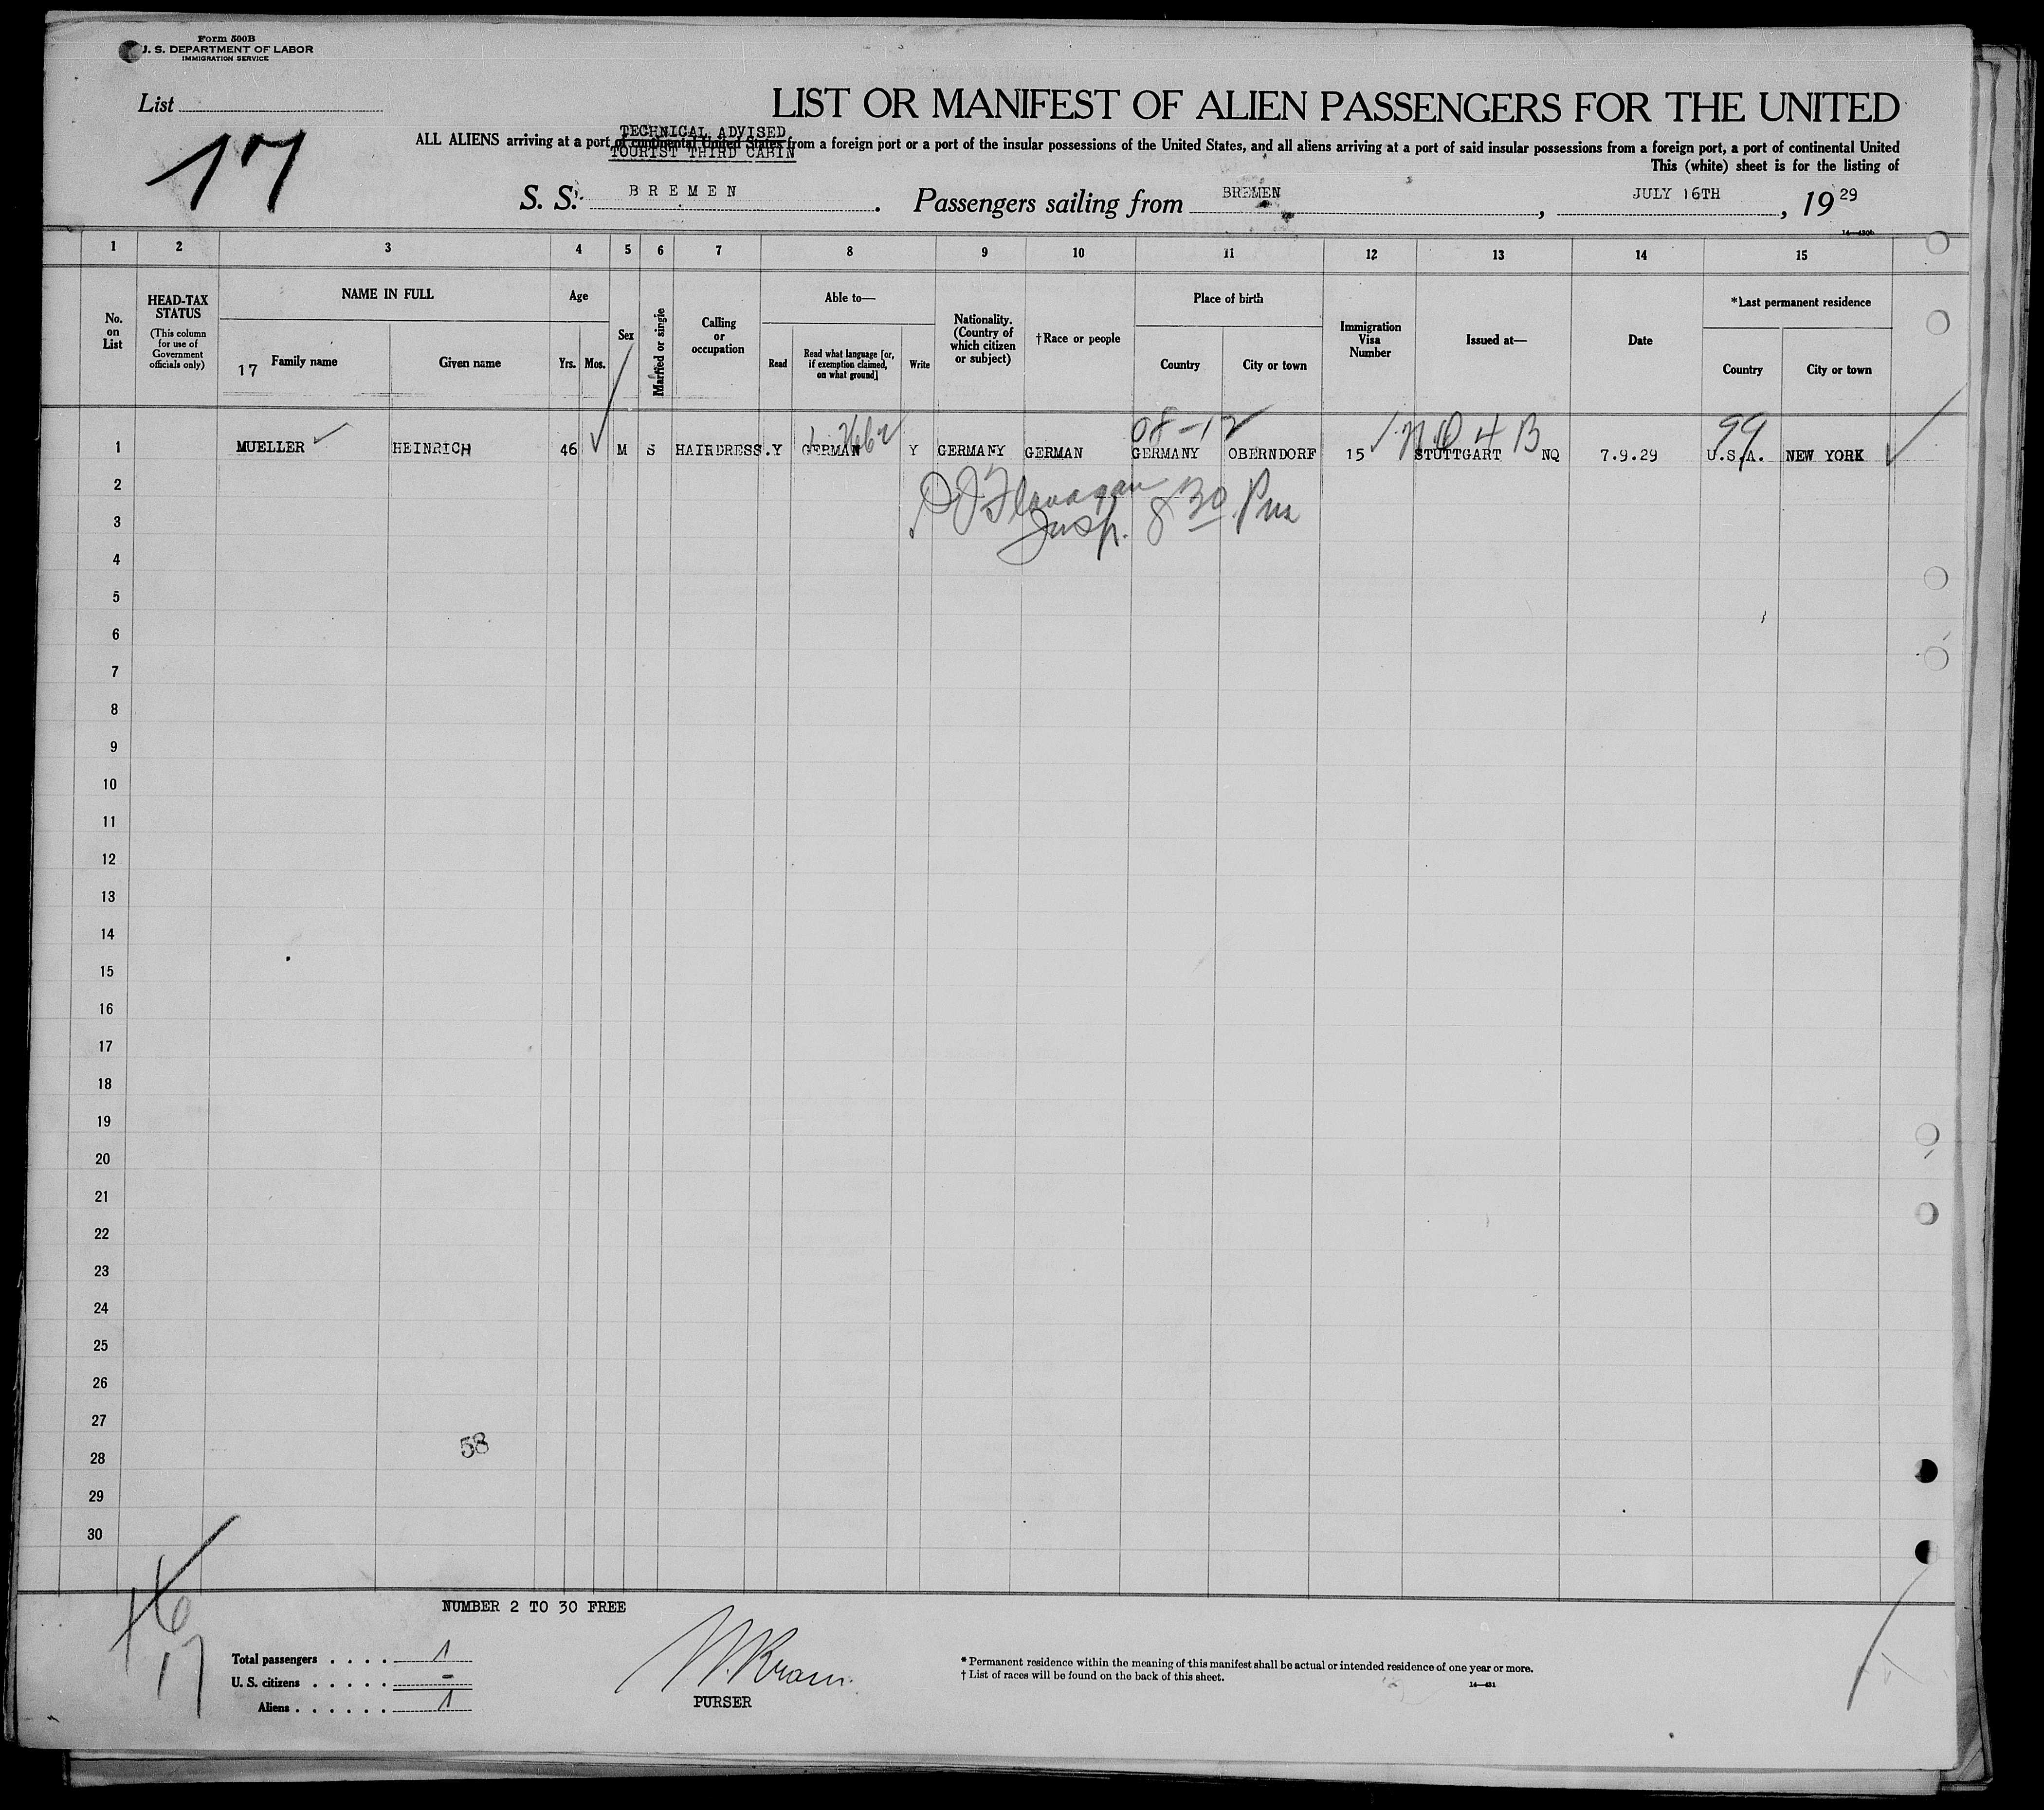 Form 500B
U. S. DEPARTMENT OF LABOR
IMMIGRATION SERVICE
List
17
LIST OR MANIFEST OF ALIEN PASSENGERS FOR THE UNITED
TECHNICAL ADVISED
ALL ALIENS arriving at a port of continental United States from a foreign port or a port of the insular possessions of the United States, and all aliens arriving at a port of said insular possessions from a foreign port, a port of continental United
TOURIST THIRD CABIN
This (white) sheet is for the listing of
S. S. BREMEN. Passengers sailing from BREMEN, JULY 16TH, 19 29
14—430b
1 2 3 4 5 6 7 8 9 10 11 12 13 14 15
No. on List
HEAD-TAX STATUS
(This column for use of Government officials only)
NAME IN FULL
17 Family name
Given name
Age
Yrs. Mos.
Sex
Married or single
Calling or occupation
Able to—
Read
Read what language [or, if exemption claimed, on what ground]
Write
Nationality. (Country of which citizen or subject)
†Race or people
Place of birth
Country
City or town
Immigration Visa Number
Issued at—
Date
*Last permanent residence
Country
City or town
08-12 99
1 MUELLER HEINRICH 46 M S HAIRDRESS. Y GERMAN Y GERMANY GERMAN GERMANY OBERNDORF 15 STUTTGART NQ 7.9.29 U.S.A. NEW YORK
2
Flanagan
3
Insp. 8 30 Pm
4
5
6
7
8
9
10
11
12
13
14
15
16
17
18
19
20
21
22
23
24
25
26
27
58
28
29
30
16
17
NUMBER 2 TO 30 FREE
Total passengers . . . . 1
U. S. citizens . . . . . -
Aliens . . . . . . 1
PURSER
* Permanent residence within the meaning of this manifest shall be actual or intended residence of one year or more.
† List of races will be found on the back of this sheet.
14—431